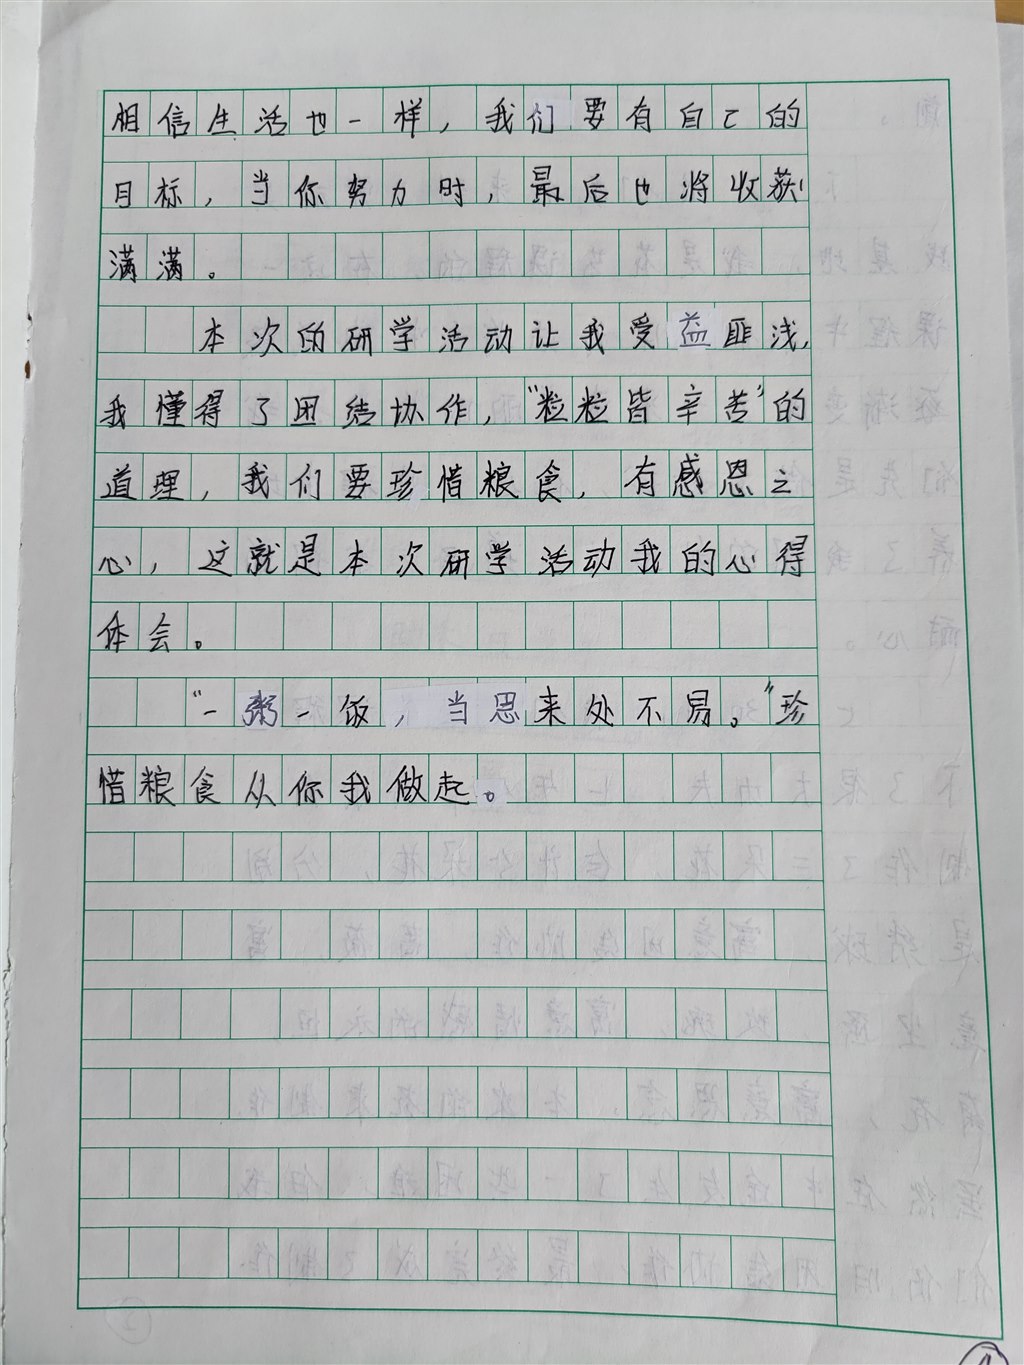 相信生活也一样，我们要有自己的
目标，当你努力时，最后也将收获
满满。
本次的研学活动让我受益匪浅，
我懂得了团结协作，“粒粒皆辛苦”的
道理，我们要珍惜粮食，有感恩之
心，这就是本次研学活动我的心得
体会。
“一粥一饭，当思来处不易。”珍
惜粮食从你我做起。